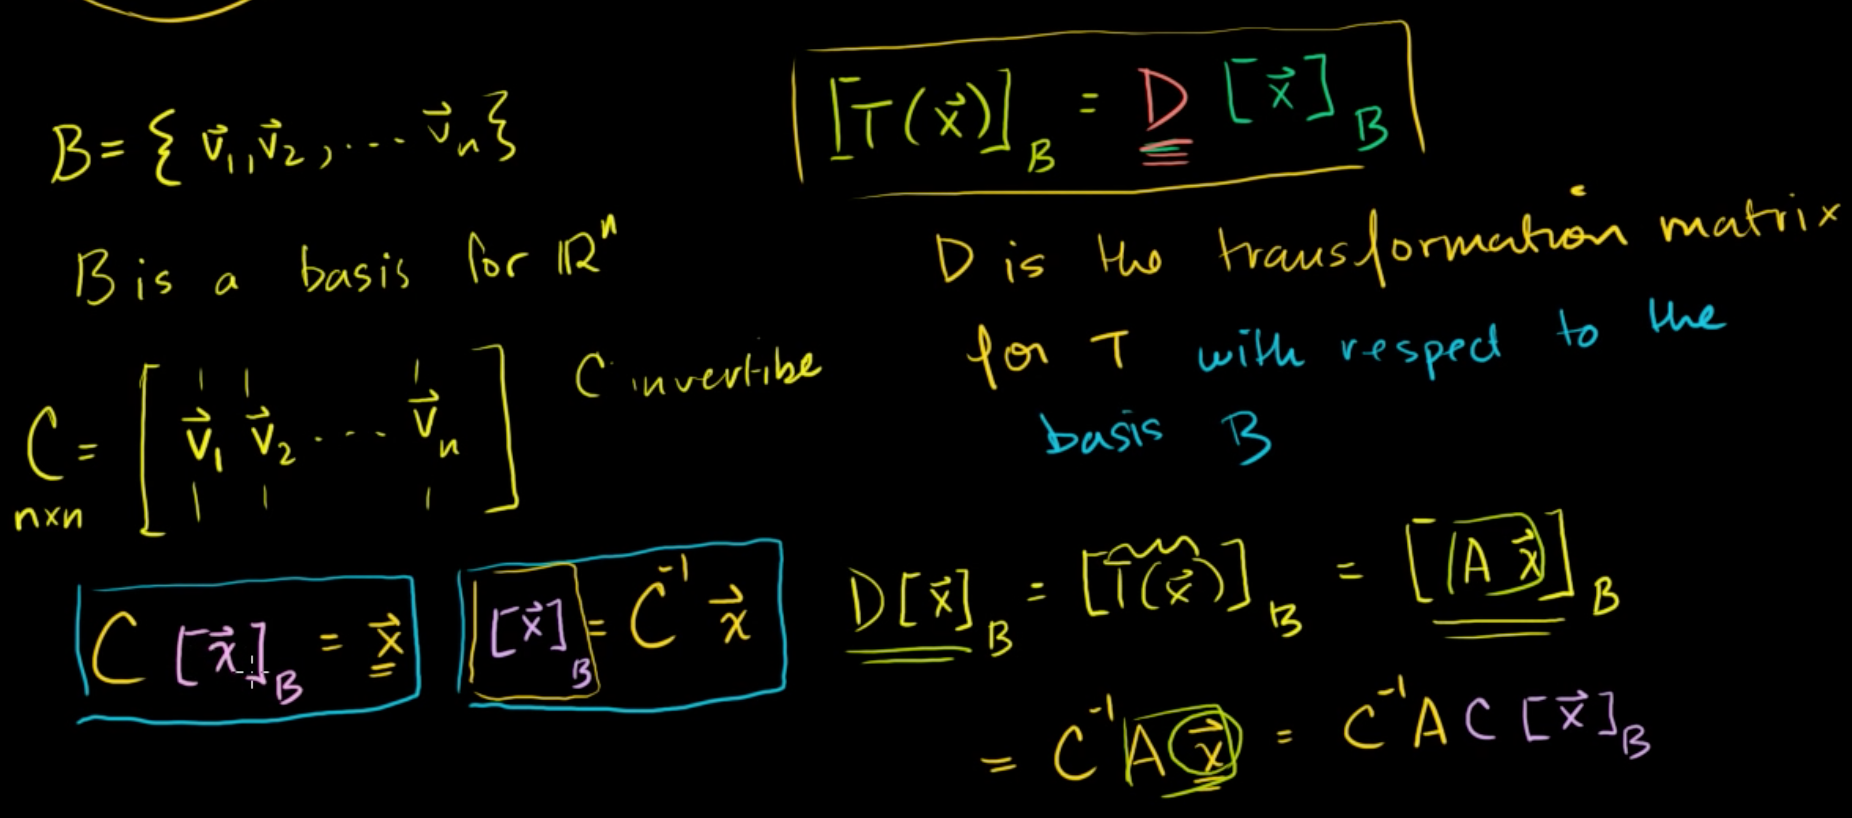 B = { v⃗₁, v⃗₂, ... v⃗ₙ }
B is a basis for ℝⁿ
C = [ v⃗₁ v⃗₂ ... v⃗ₙ ] C invertibe
n×n
C [x⃗]_B = x⃗
[x⃗]_B = C⁻¹ x⃗
[T(x⃗)]_B = D [x⃗]_B
D is the transformation matrix
for T with respect to the
basis B
D[x⃗]_B = [T(x⃗)]_B = [A x⃗]_B
= C⁻¹ A x⃗ = C⁻¹ A C [x⃗]_B